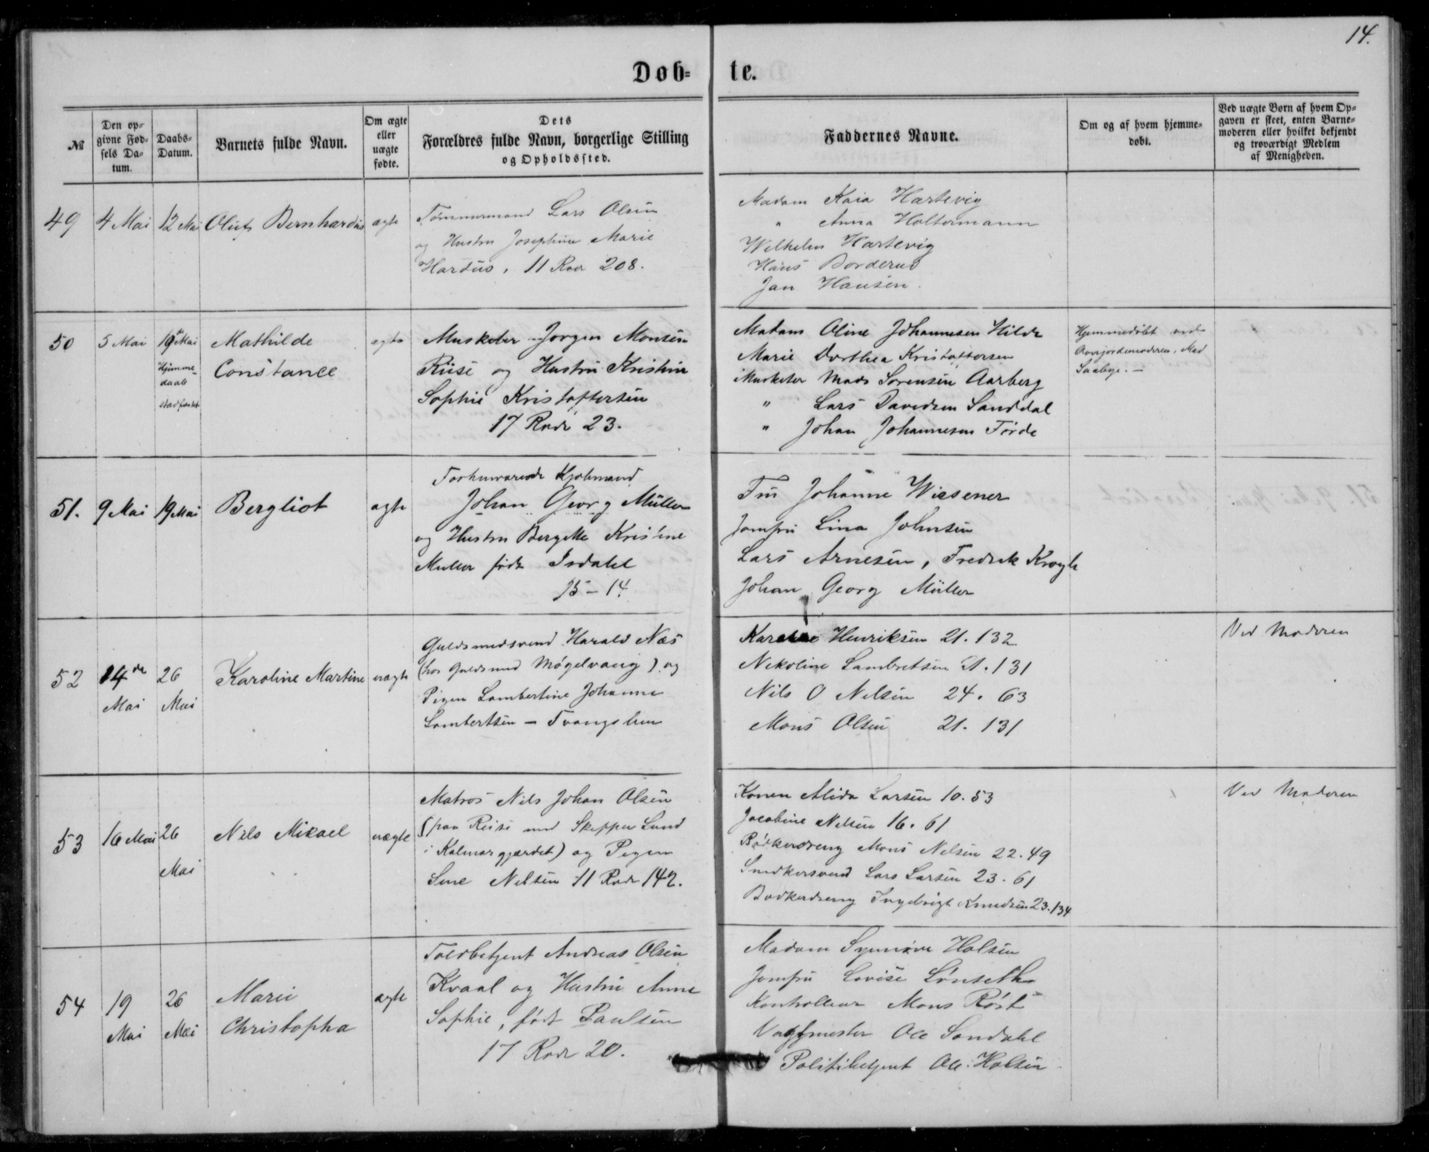 14.
Döb= te.
№
Den op-
givne Fød-
sels Da-
tum.
Daabs-
Datum.
Barnets fulde Navn.
Om ægte
eller
uægte
fødte.
Dets
Forældres fulde Navn, borgerlige Stilling
og Opholdssted.
Faddernes Navne.
Om og af hvem hjemme-
døbt.
Ved uægte Børn af hvem Op-
gaven er skeet, enten Barne-
moderen eller hvilket bekjendt
og troværdigt Medlem
af Menigheden.
49 4 Mai 12 Mai Oluf Bernhardus ægte
Tømmermand Lars Olsen
og Hustru Josephine Marie
Hardus, 11 Rode 208.
Madam Kaia Hartevig
" Anna Haltermann
Wilhelm Hartevig
Hans Borderud
Jan Hansen.
50 5 Mai 19 Mai
Hjemme-
daab
stadfæstet
Mathilde
Constance
ægte
Musketer Jørgen Monsen
Riise og Hustru Kristine
Sophie Kristoffersen
17 Rode 23.
Madam Oline Johannesen Hilde
Marie Dorthea Kristoffersen
Musketer Mads Sørensen Aarberg
" Lars Davidsen Sanddal
" Johan Johannesen Førde
Hjemmedøbt ved
Overjordemoderen, Mad
Saabye. —
51. 9 Mai 19 Mai Bergliot ægte
Forhenværende Kjøbmand
Johan Georg Müller
og Hustru Bergitte Kristine
Müller født Isdahl
15 – 14.
Fru Johanne Wiesener
Jomfru Lina Johnsen
Lars Arnesen, Fredrik Krogh
Johan Georg Müller
52 14de
Mai
26
Mai
Karoline Martine uægte
Guldsmedsvend Harald Næs
(hos Guldsmed Møgelvang) og
Pigen Lambertine Johanne
Lambertsen – Tvangshuu
Henriksen 21. 132
Nikoline Lambretsen 21. 131
Nils O Nilsen 24. 63
Mons Olsen 21. 131
Ved Moderen
53 16 Mai 26
Mai
Nils Mikael uægte
Matros Nils Johan Olsen
(paa Reise med Skipper Lund
i Kalmargjærdet) og Pigen
Sine Nilsen 11 Rode 142.
Konen Alida Larsen 10. 53
Jacobine Nilsen 16. 61
Bødkerdreng Mons Nilsen 22. 49
Snedkersvend Lars Larsen 23. 61
Bødkerdreng Ingebrigt Knudsen 23. 134
Ved Moderen
54 19
Mai
26
Mai
Marie
Christopha
ægte
Toldbetjent Andreas Olsen
Kvaal og Hustru Anne
Sophie, født Paulsen
17 Rode 20.
Madam Synnøve Holsen
Jomfru Lovise Lønseth
Kontrolleur Mons Røst
Vagtmester Ole Sondahl
Politibetjent Ole Holsen